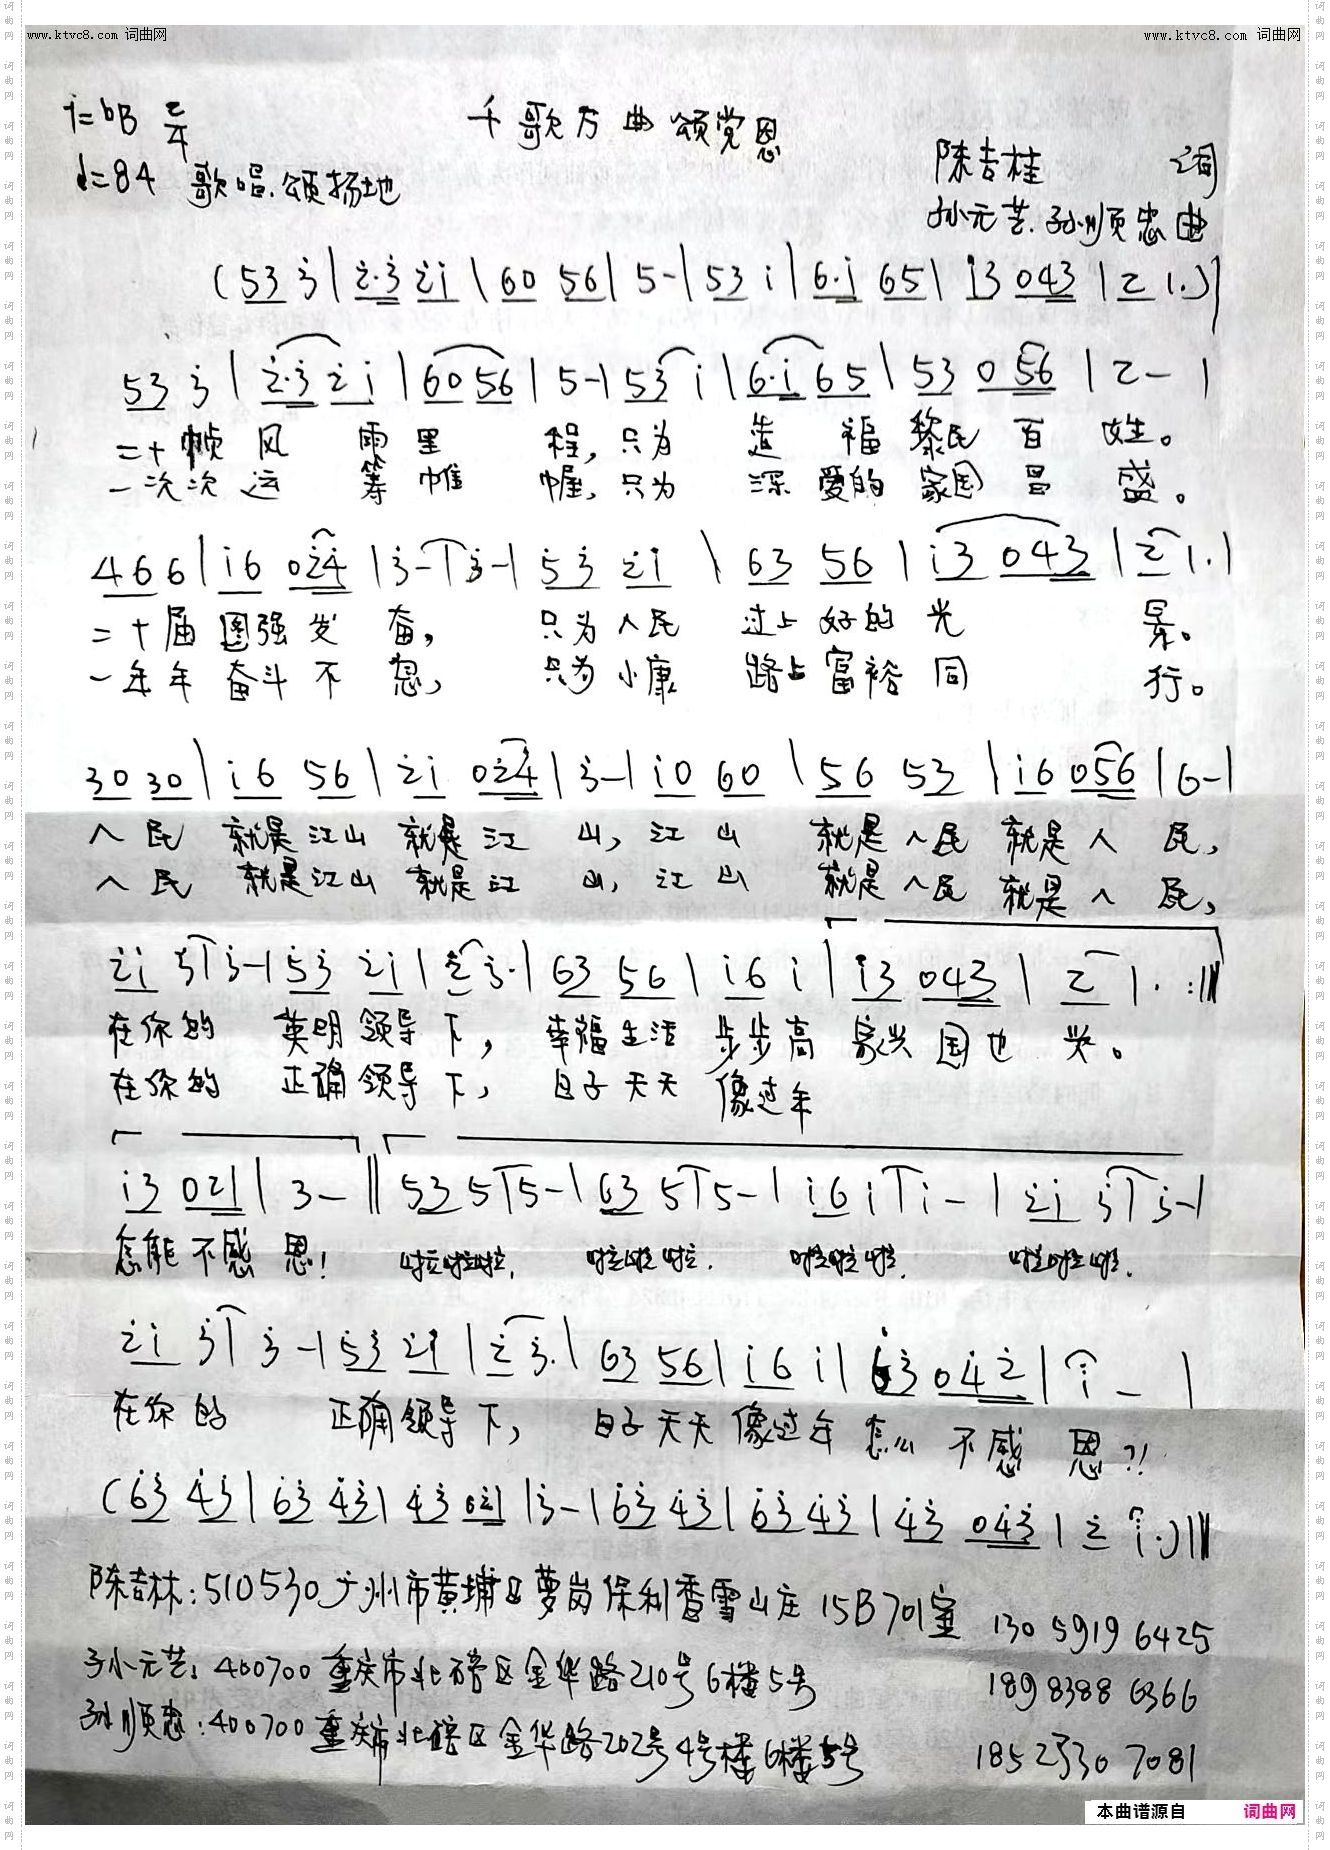 www.ktvc8.com 词曲网 www.ktvc8.com 词曲网
1=bB 2/4 千歌万曲颂党恩
♩=84 歌唱.颂扬地 陈吉桂 词
孙元艺.孙顺忠 曲
(53 3|2·3 21|60 56|5-|53 1|6·1 65|13 043|2 1.)|
53 3|2·3 21|60 56|5-|53 1|6·1 65|53 056|2-|
二十帧风雨里程,只为造福黎民百姓。
一次次运筹帷幄,只为深爱的家国昌盛。
466|16 024|3-|3-|53 21|63 56|13 043|2 1.|
二十届图强发奋,只为人民过上好的光景。
一年年奋斗不息,只为小康路上富裕同行。
30 30|16 56|21 024|3-|10 60|56 53|16 056|6-|
人民就是江山就是江山,江山就是人民就是人民,
人民就是江山就是江山,江山就是人民就是人民,
21 3|3-|53 21|2 3.|63 56|16 1|13 043|2 1.:||
在你的英明领导下,幸福生活步步高家兴国也兴。
在你的正确领导下,日子天天像过年
13 021|3-||53 5|5-|63 5|5-|16 1|1-|21 3|3-|
怎能不感恩!啦啦啦,啦啦啦,啦啦啦,啦啦啦.
21 3|3-|53 21|2 3.|63 56|16 1|63 042|1-|
在你的正确领导下,日子天天像过年怎么不感恩?!
(63 43|63 43|43 021|3-|63 43|63 43|43 043|2 1.)||
陈吉林:510530广州市黄埔区萝岗保利香雪山庄15B701室 130 5919 6425
孙元艺:400700重庆市北碚区金华路210号6楼5号 189 8388 6366
孙顺忠:400700重庆市北碚区金华路202号4号楼6楼5号 185 2330 7081
本曲谱源自 词曲网